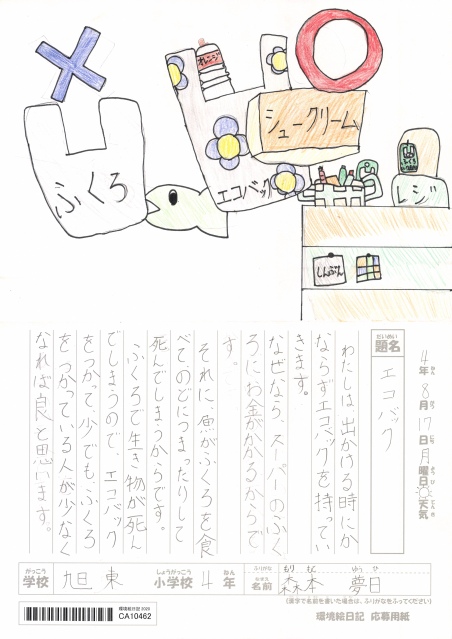 オレンジ
シュークリーム
ふくろ
エコバック
レジ
しんぶん
4年8月17日月曜日 天気
だいめい
題名
エコバック
わたしは、出かける時にか
ならずエコバックを持ってい
きます。
なぜなら、スーパーのふく
ろにお金がかかるからで
す。
それに、魚がふくろを食
べて、のどにつまったりして
死んでしまうからです。
ふくろで生き物が死ん
でしまうので、エコバック
をつかって、少しでも、ふくろ
をつかっている人が少なく
なれば良いと思います。
がっこう しょうがっこう ねん ふりがな もり もと ゆう ひ
学校 旭東 小学校 4年 名前 森本 夢日
(漢字で名前を書いた場合は、ふりがなをふってください)
環境絵日記 2020
CA10462
環境絵日記 応募用紙